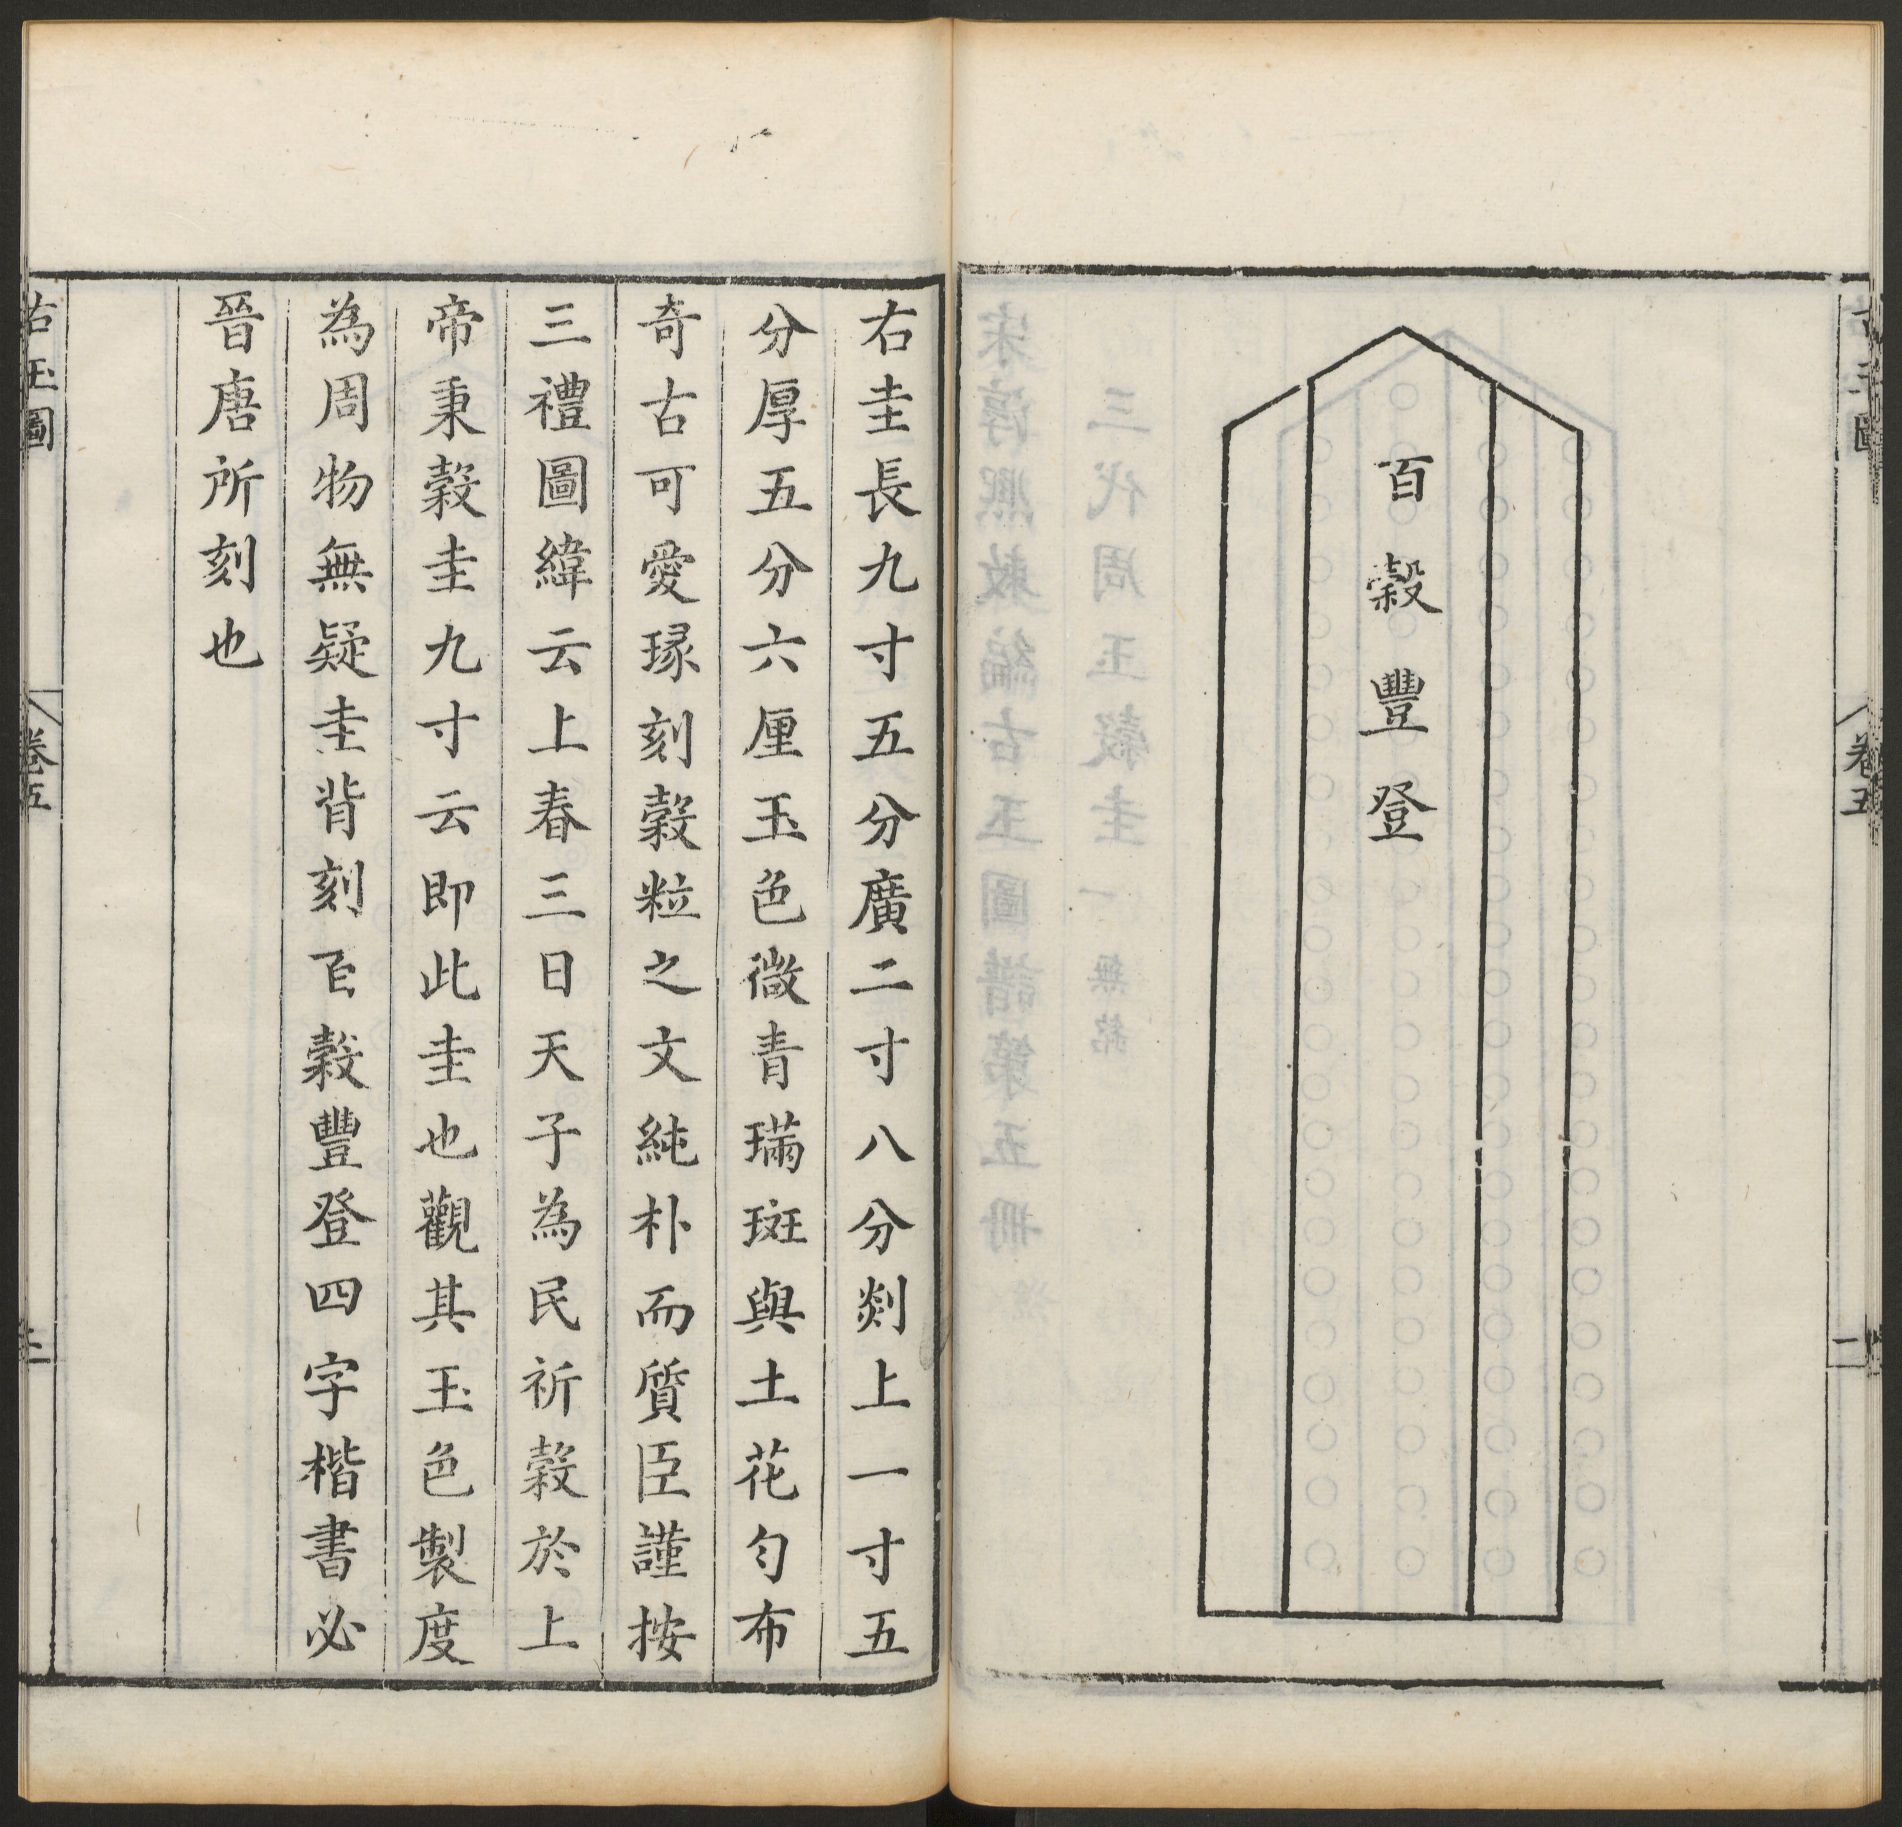 百穀豐登
古玉圖
卷五
一
右圭長九寸五分廣二寸八分剡上一寸五
分厚五分六厘玉色微青璊斑與土花勻布
奇古可愛瑑刻穀粒之文純朴而質臣謹按
三禮圖緯云上春三日天子為民祈穀於上
帝秉穀圭九寸云即此圭也觀其玉色製度
為周物無疑圭背刻百穀豐登四字楷書必
晉唐所刻也
古玉圖
卷五